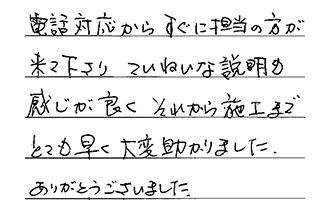 電話対応から すぐに担当の方が
来て下さり ていねいな説明も
感じが良く それから施工まで
とても早く 大変助かりました.
ありがとうございました.